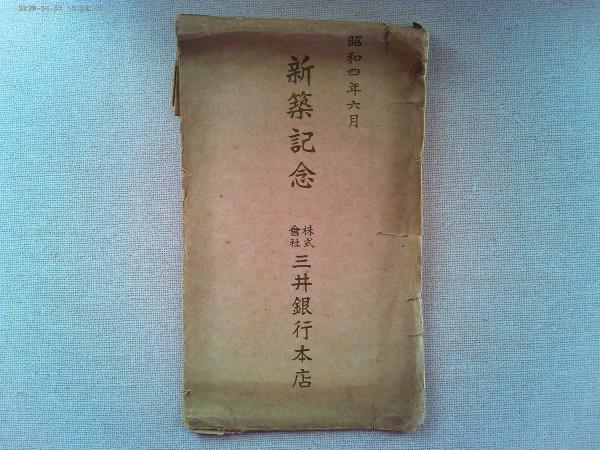 昭和四年六月
新築記念
株式會社
三井銀行本店